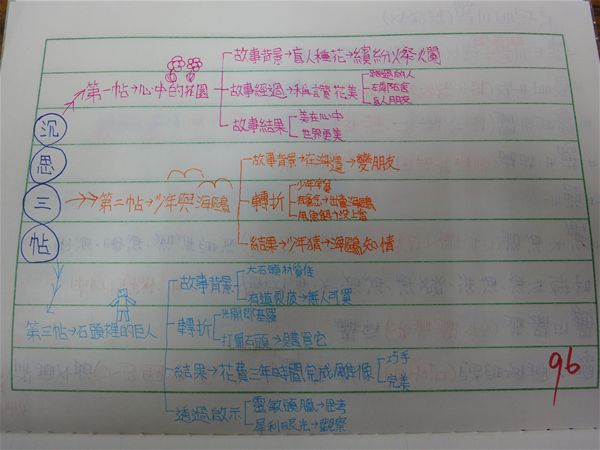 沉思三帖
第一帖→心中的花園
故事背景→盲人種花→繽紛火祭火闌
故事經過→稱讚花美
路過的人
左鄰右舍
盲人朋友
故事結果
美在心中
世界更美
第二帖→少年與海鷗
故事背景→在海邊→變朋友
轉折
結果→少年猜→海鷗知情
第三帖→石頭裡的巨人
故事背景
大石頭材質佳
有道裂痕→無人可買
轉折
米開朗基羅
打量石頭→購買它
結果→花費三年時間完成雕像
巧手
完美
透過啟示
靈敏頭腦→思考
犀利眼光→觀察
96